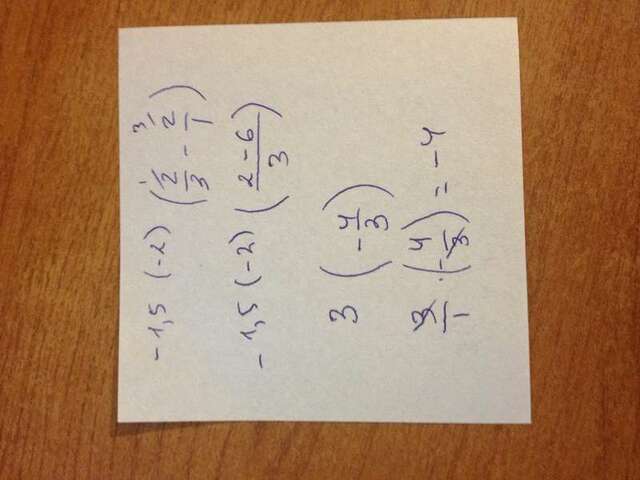 -1,5 (-2) (1\ 2/3 - 3\ 2/1)
-1,5 (-2) ((2-6)/3)
3 (-4/3)
3/1 · (-4/3) = -4